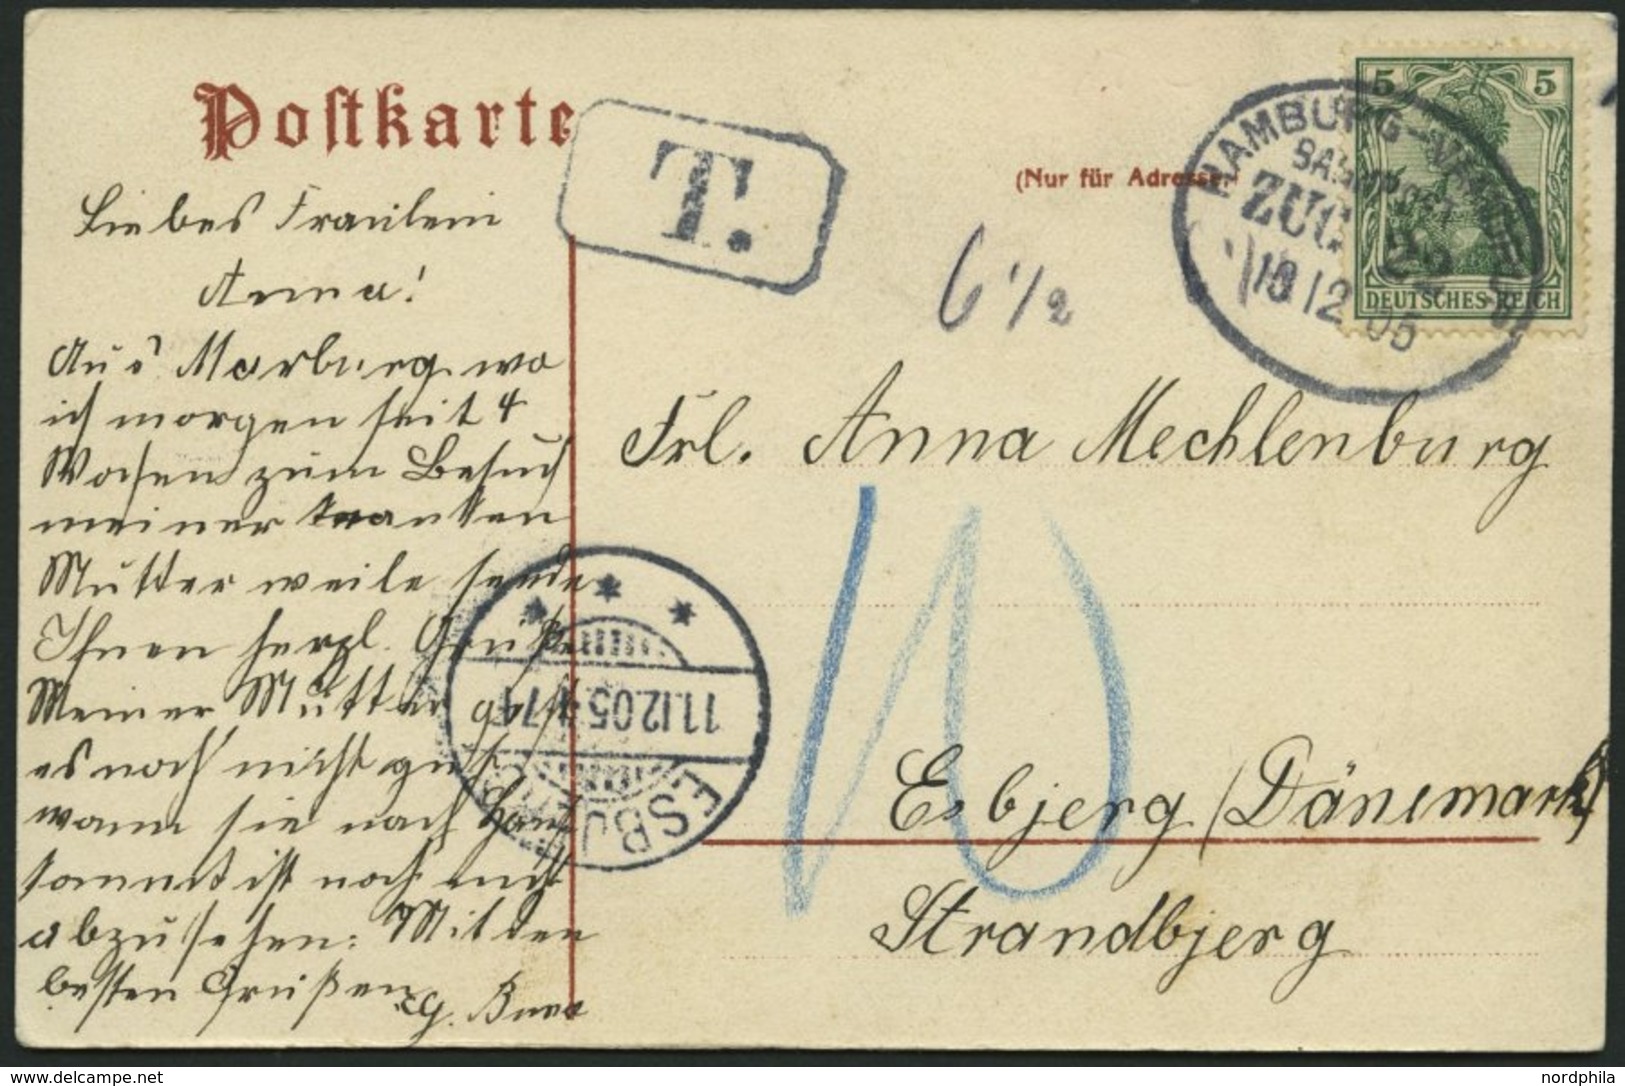 Postkarte
T.
(Nur für Adresse.)
HAMBURG-VAMDRUP
BAHNPOST
ZUG 22
10 12 05
5 5
DEUTSCHES REICH
6 1/2
Liebes Fräulein
Anna!
Aus Marburg wo
ich morgen seit 4
Wochen zum Besuch
meiner kranken
Mutter weile sende
Ihnen herzl. Grüße.
Meiner Mutter geht
es noch nicht gut
wann sie nach Haus
kommt ist noch nicht
abzusehen. Mit den
besten Grüßen
Frl. Anna Mechlenburg
10
Esbjerg (Dänemark)
Strandbjerg
ESBJERG
11.12.05
delcampe.net
nordphila